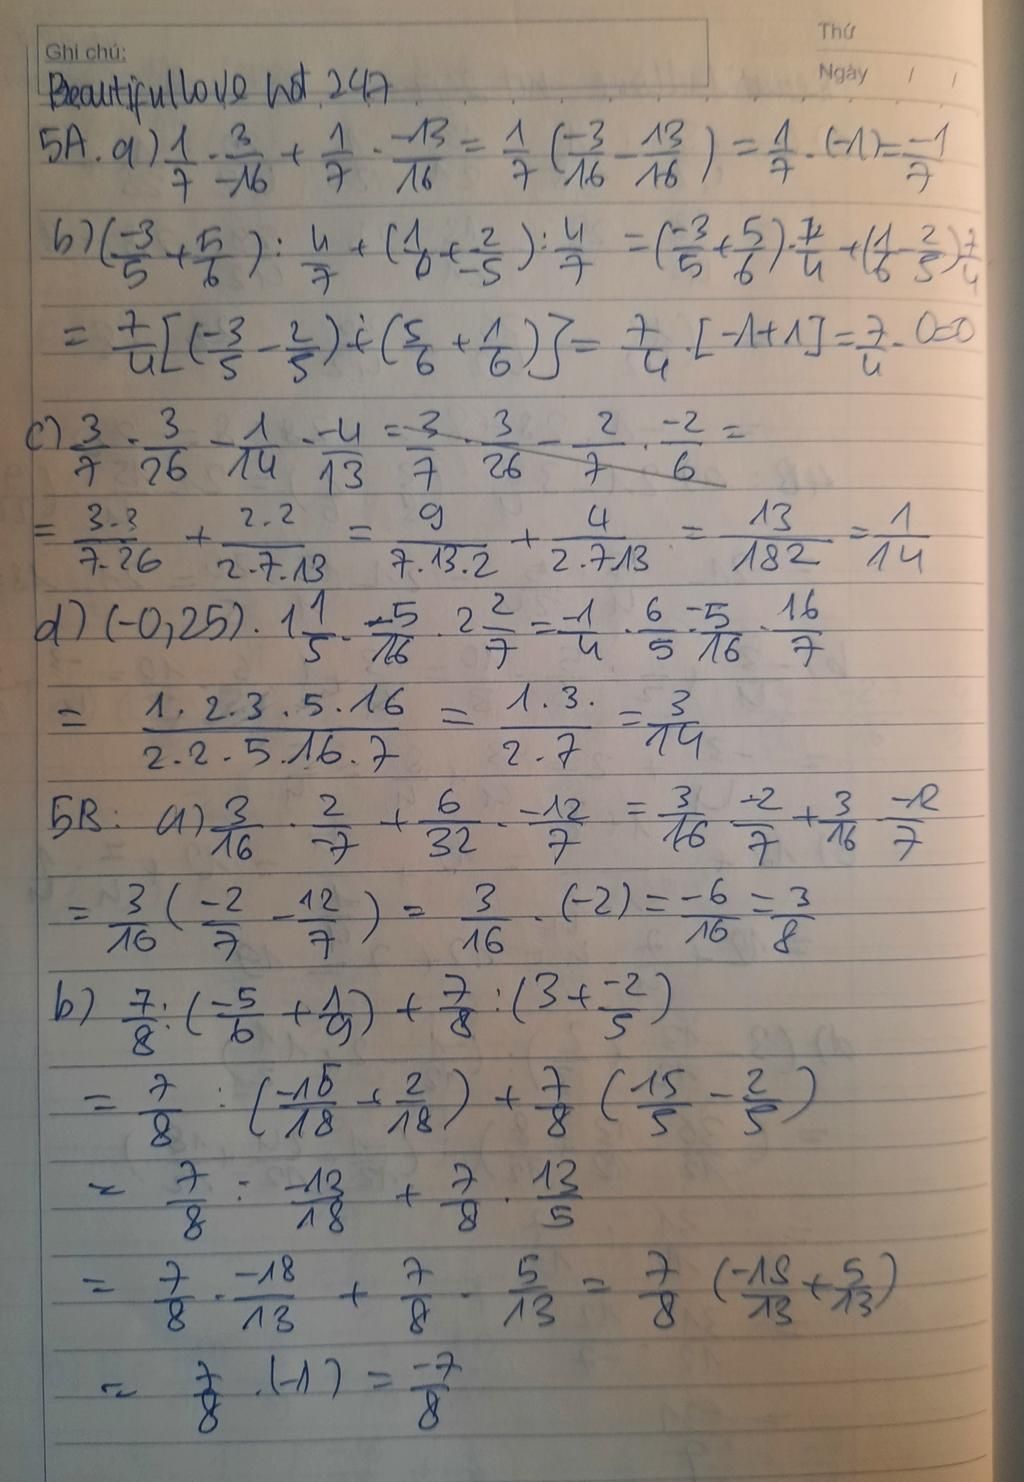 Thứ
Ghi chú:
Ngày / /
Beautifullove hot 247
5A. a) 1/7 . 3/-16 + 1/7 . -13/16 = 1/7 (-3/16 - 13/16) = 1/7 . (-1) = -1/7
b) (-3/5 + 5/6) : 4/7 + (1/6 + 2/-5) : 4/7 = (-3/5 + 5/6) . 7/4 + (1/6 - 2/5) 7/4
= 7/4 [(-3/5 - 2/5) + (5/6 + 1/6)] = 7/4 . [-1+1] = 7/4 . 0=0
c) 3/7 . 3/26 - 1/14 . -4/13 = 3/7 . 3/26 - 2/7 . -2/6 =
= 3.3/7.26 + 2.2/2.7.13 = 9/7.13.2 + 4/2.7.13 = 13/182 = 1/14
d) (-0,25) . 1 1/5 . -5/16 . 2 2/7 = -1/4 . 6/5 . -5/16 . 16/7
= 1.2.3.5.16/2.2.5.16.7 = 1.3./2.7 = 3/14
5B: a) 3/16 . 2/-7 + 6/32 . -12/7 = 3/16 . -2/7 + 3/16 . -12/7
= 3/16 (-2/7 - 12/7) = 3/16 . (-2) = -6/16 = 3/8
b) 7/8 : (-5/6 + 1/9) + 7/8 : (3 + -2/5)
= 7/8 : (-15/18 + 2/18) + 7/8 (15/5 - 2/5)
= 7/8 : -13/18 + 7/8 . 13/5
= 7/8 . -18/13 + 7/8 . 5/13 = 7/8 (-18/13 + 5/13)
= 7/8 . (-1) = -7/8